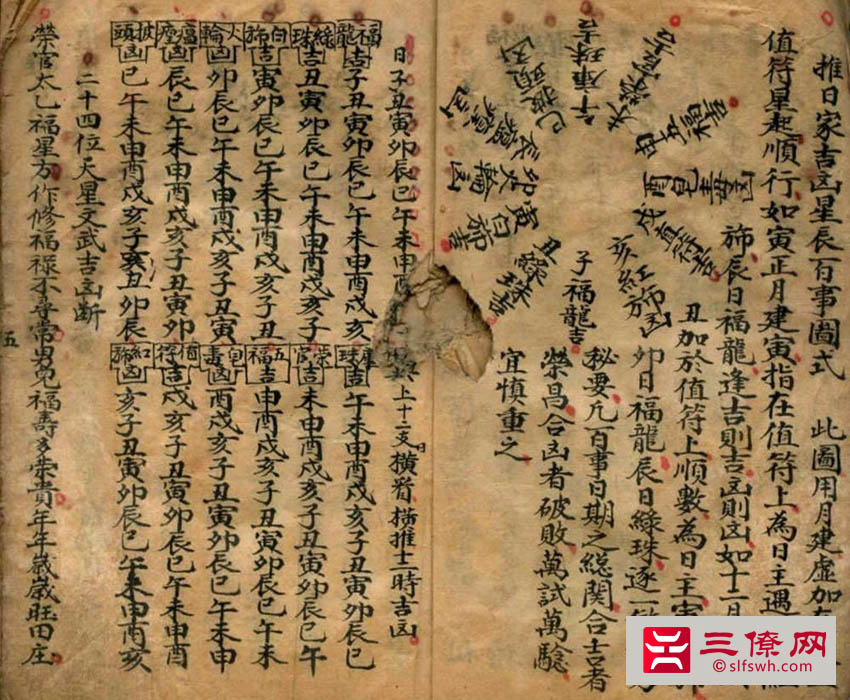 推日家吉凶星辰百事圖式 此圖用月建虛加
值符星起順行如寅正月建寅指在值符上為日主遇
斾辰日福龍逢吉則吉凶則凶如十二月
丑加於值符上順數為日主寅
卯日福龍辰日綠珠逐一
秘要凡百事日期之総関合吉者
榮昌合凶者破敗萬試萬驗
宜慎重之
子福龍吉
丑綠珠吉
寅白斾吉
卯火輪凶
辰瘟凶
巳披頭凶
午庫珠吉
未榮官吉
申吉
酉皂毒凶
戌值符吉
亥紅斾凶
日子丑寅卯辰巳午未申酉 上十二支日橫看橫推十二時吉凶
福龍吉子丑寅卯辰巳午未申酉戌亥 庫珠吉午未申酉戌亥子丑寅卯辰巳
綠珠吉丑寅卯辰巳午未申酉戌亥子 榮官吉未申酉戌亥子丑寅卯辰巳午
白斾吉寅卯辰巳午未申酉戌亥子丑 五福吉申酉戌亥子丑寅卯辰巳午未
火輪凶卯辰巳午未申酉戌亥子丑寅 皂毒凶酉戌亥子丑寅卯辰巳午未申
瘟凶辰巳午未申酉戌亥子丑寅卯 值符吉戌亥子丑寅卯辰巳午未申酉
披頭凶巳午未申酉戌亥子丑卯辰 紅斾凶亥子丑寅卯辰巳午未申酉亥
二十四位天星文武吉凶断
榮官太乙福星方作修福祿不尋常男兒福壽多榮貴年年歲歲旺田庄
五
三僚网
slfswh.com